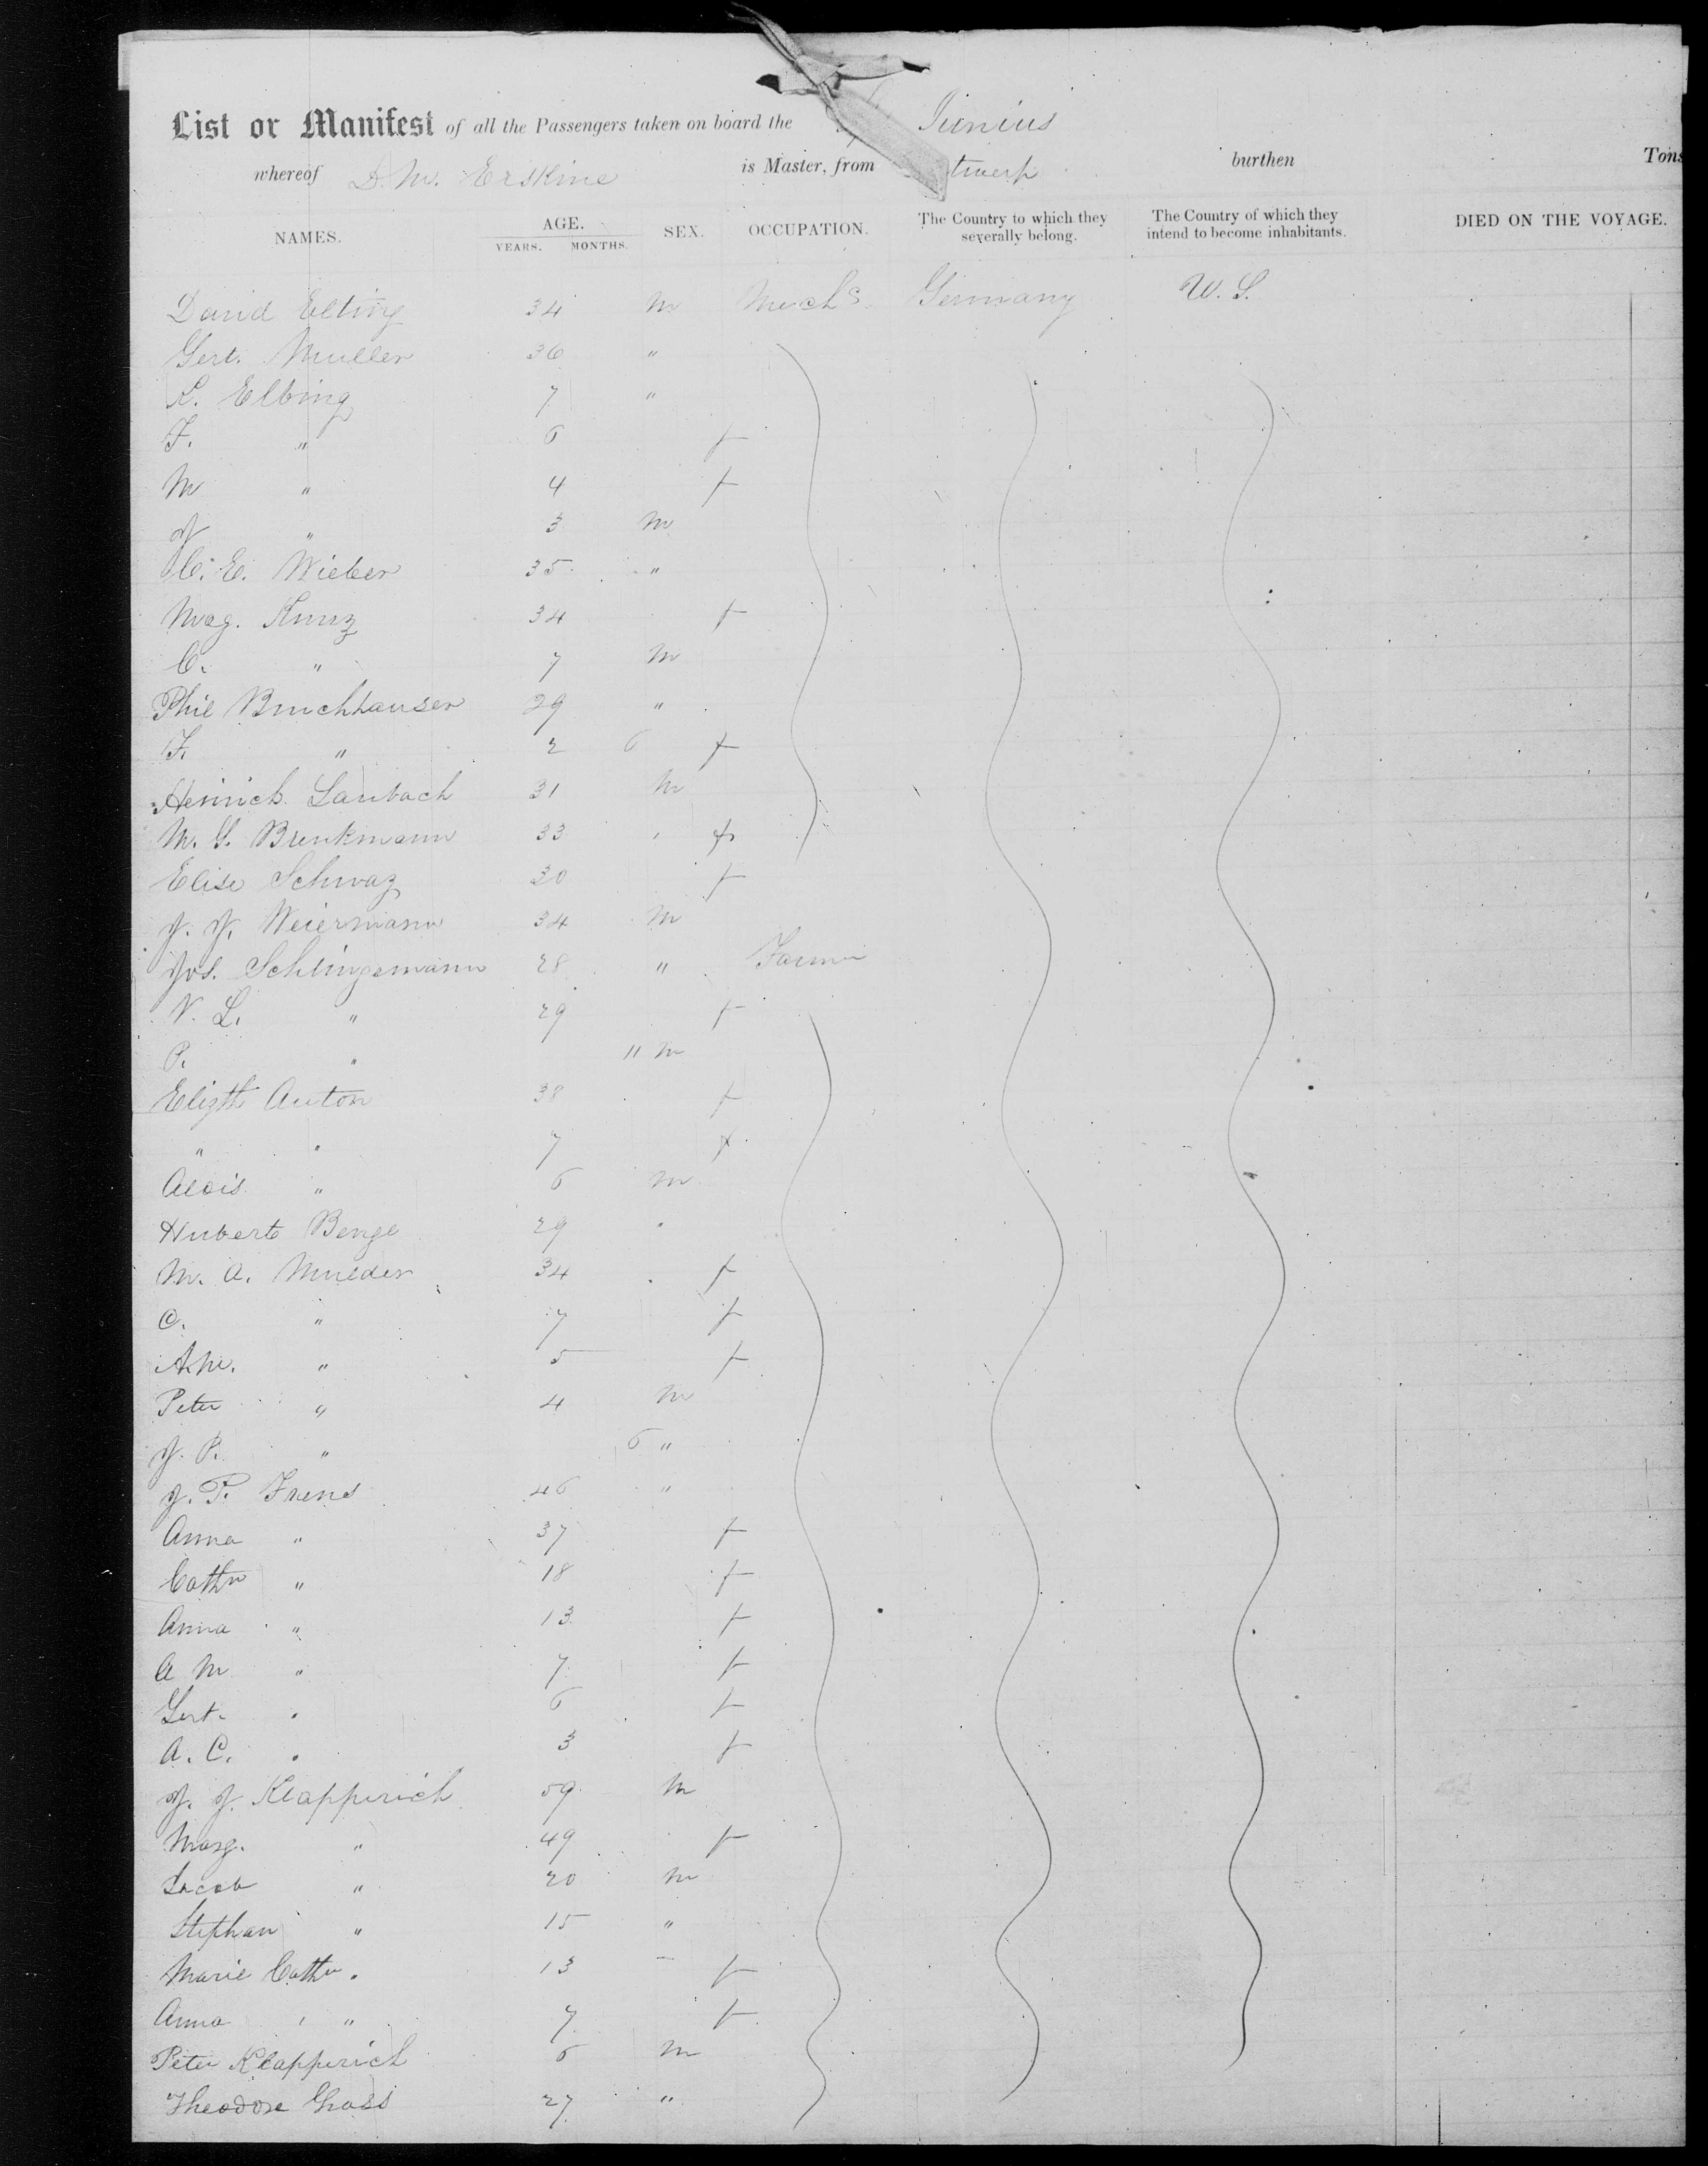 List or Manifest of all the Passengers taken on board the Junius
whereof D. M. Erskine is Master, from twerp burthen Tons
NAMES. AGE. YEARS. MONTHS. SEX. OCCUPATION. The Country to which they severally belong. The Country of which they intend to become inhabitants. DIED ON THE VOYAGE.
David Elbing 34 m Mechc Germany U. S.
Gert. Muller 36 "
K. Elbing 7 "
F. " 6 f
M " 4 f
J " 3 m
C. E. Wieber 35 "
Mag. Kunz 34 f
C. " 7 m
Phil Bruchhauser 29 "
F. " 2 6 f
Heinich Laubach 31 m
M. G. Brinkmann 33 f
Elise Schwaz 30 f
J. J. Weiermann 34 m
Jos. Schlingemann 28 " Farmer
N. L. " 29 f
P. " 11 m
Elizth Anton 38 f
" " 7 f
Alois " 6 m
Hubert Benge 29 "
M. A. Mulder 34 f
C. " 7 f
" 5 f
Peter " 4 m
J. P. " 6 "
J. P. Frens 46 "
Anna " 37 f
Cathn " 18 f
Anna " 13 f
A M " 7 f
Gert. " 6 f
A. C. " 3 f
J. J. Klapperich 59 m
Marg. " 49 f
Jacob " 20 m
Stephan " 15 "
Marie Cathn " 13 f
Anna " 7 f
Peter Klapperich 6 m
Theodore Gross 27 "